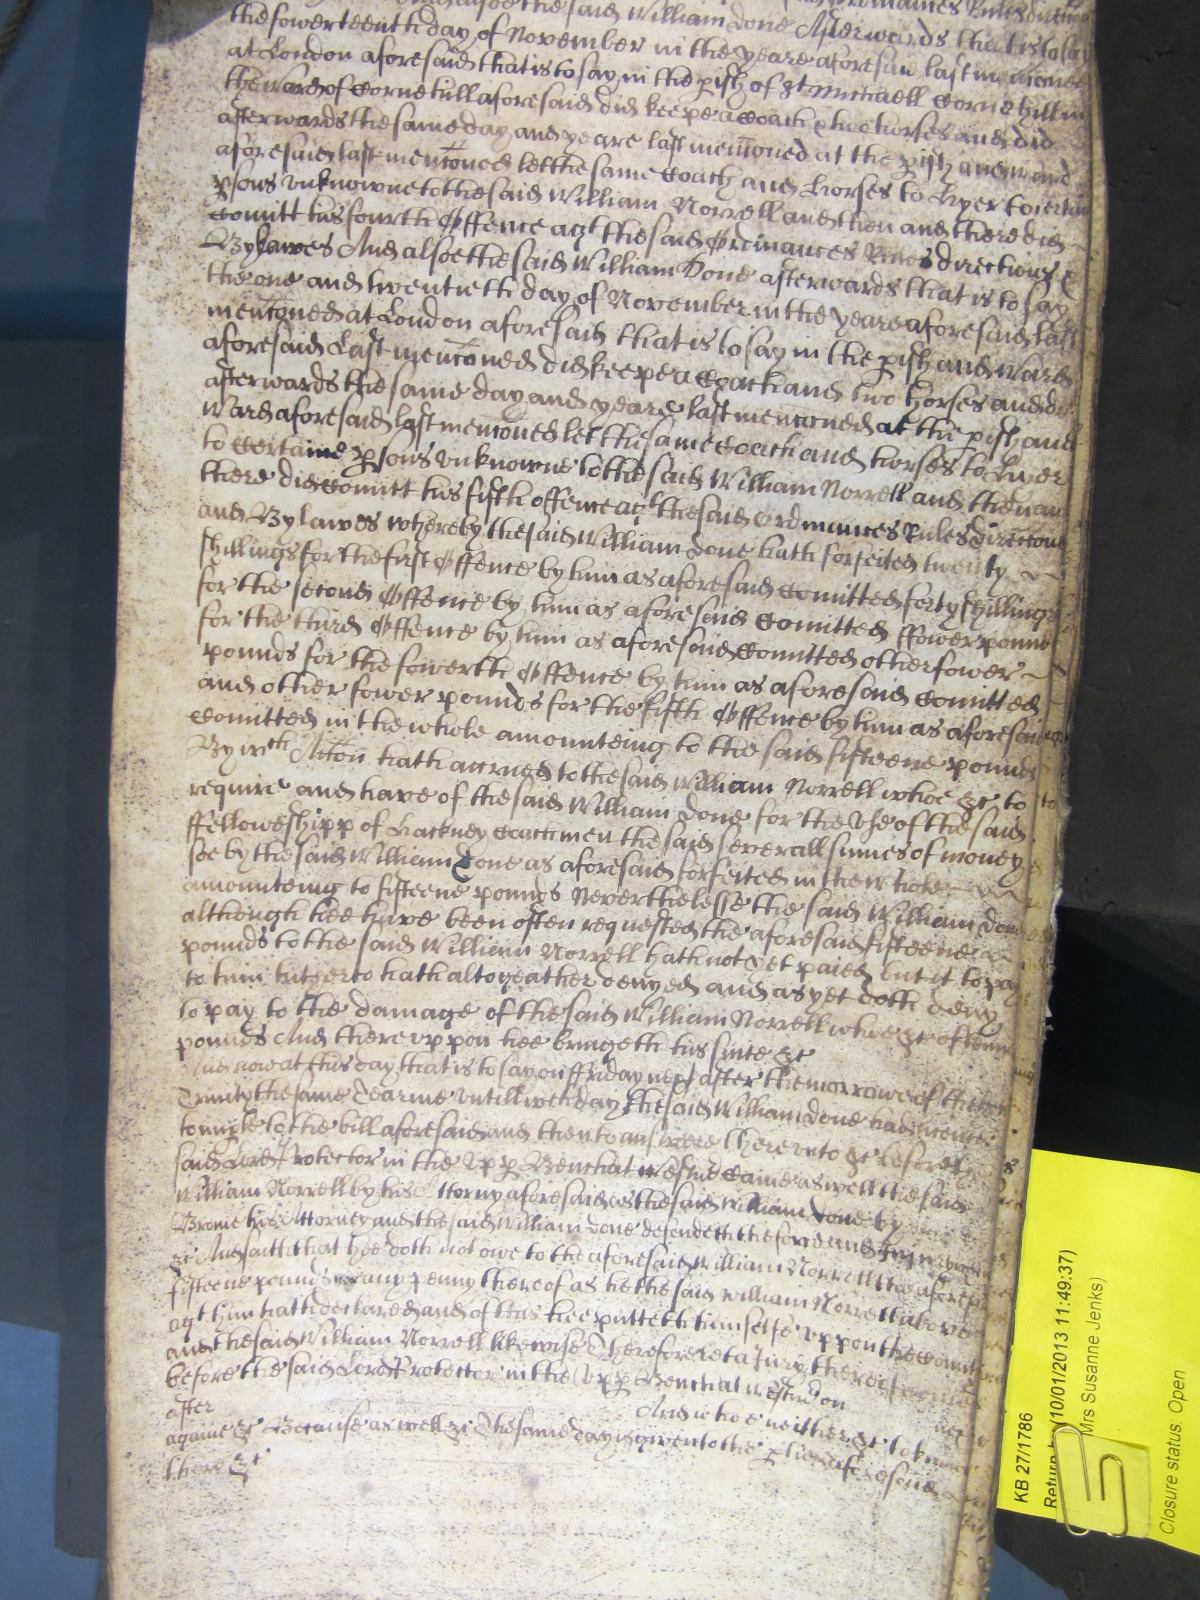 And alsoe the said William Done Afterwards that is to say
the fowerteenth day of November in the yeare aforesaid last mencioned
at London aforesaid that is to say in the pish of St Michaell Cornehill in
the ward of Cornehill aforesaid did keepe a Coach & two horses and did
afterwards the same day and yeare last mencōned at the pish and ward
aforesaid last mencōned lett the same Coach and horses to hyer to certain
psons unknowne to the said William Norrell and then and there did
Comitt his fourth Offence agt the said Ordinances Rules directions &
Bylawes And alsoe the said William Done afterwards that is to say
the one and twentieth day of November in the yeare aforesaid last
mencōned at London aforesaid that is to say in the pish and ward
aforesaid Last mencōned did keepe a Coach and two horses and did
afterwards the same day and yeare last mencōned at the pish and
Ward aforesaid last mencōned let the same Coach and horses to hyer
to Certaine psons unknowne to the said William Norrell and then and
there did Comitt his fifth offence agt the said Ordinances Rules Direccons
and Bylawes whereby the said William Done hath forfeited twenty
shillings for the first Offence by him as aforesaid Comitted forty shillings
for the second Offence by him as aforesaid Comitted ffower pounds
for the third Offence by him as aforesaid Comitted other fower
pounds for the fowerth Offence by him as aforesaid Comitted
and other fower pounds for the fifth Offence by him as aforesaid
Comitted in the whole amounteing to the said fifteene pounds
By wch Accon hath accrued to the said William Norrell whoe &c to
require and have of the said William Done for the use of the said
ffellowshipp of Hackney Coachmen the said severall sumes of money
soe by the said William Done as aforesaid forfeited in the whole
amounteing to fifteene pounds Neverthelesse the said William Done
although hee have been often requested the aforesaid fifteene
pounds to the said William Norrell hath not yet paied but it to pay
to him hitherto hath altogeather denyed and as yet doth deny
to pay to the damage of the said William Norrell whoe &c of tenn
pounds And thereuppon hee bringeth his suite &c
And now at this day that is to say on ffriday next after the morrowe of the
Trinity the same Tearme untill wch day the said William Done had
to imple to the bill aforesaid and then to answere thereunto &c before the
said Lord Protector in the Upp Bench at Westmr Came as well the said
William Norrell by his Attorny aforesaid as the said William Done by
Brome his Attorney and the said William Done defendeth the force and Injury when
&c And saith that hee doth not owe to the aforesaid William Norrell the aforesaid
fifteene pounds or any penny thereof as he the said William Norrell above
agt him hath declared and of this hee putteth himselfe uppon the Country
and the said William Norrell likewise Therefore let a Jury thereof
before the said Lord Protector in the Upp Bench at Westmr on
after next
And whoe neither &c to
againe &c Because as well &c The same day is given to the pties aforesaid
there &c
KB 27/1786
Return by (10/01/2013 11:49:37)
Mrs Susanne Jenks)
Closure status: Open